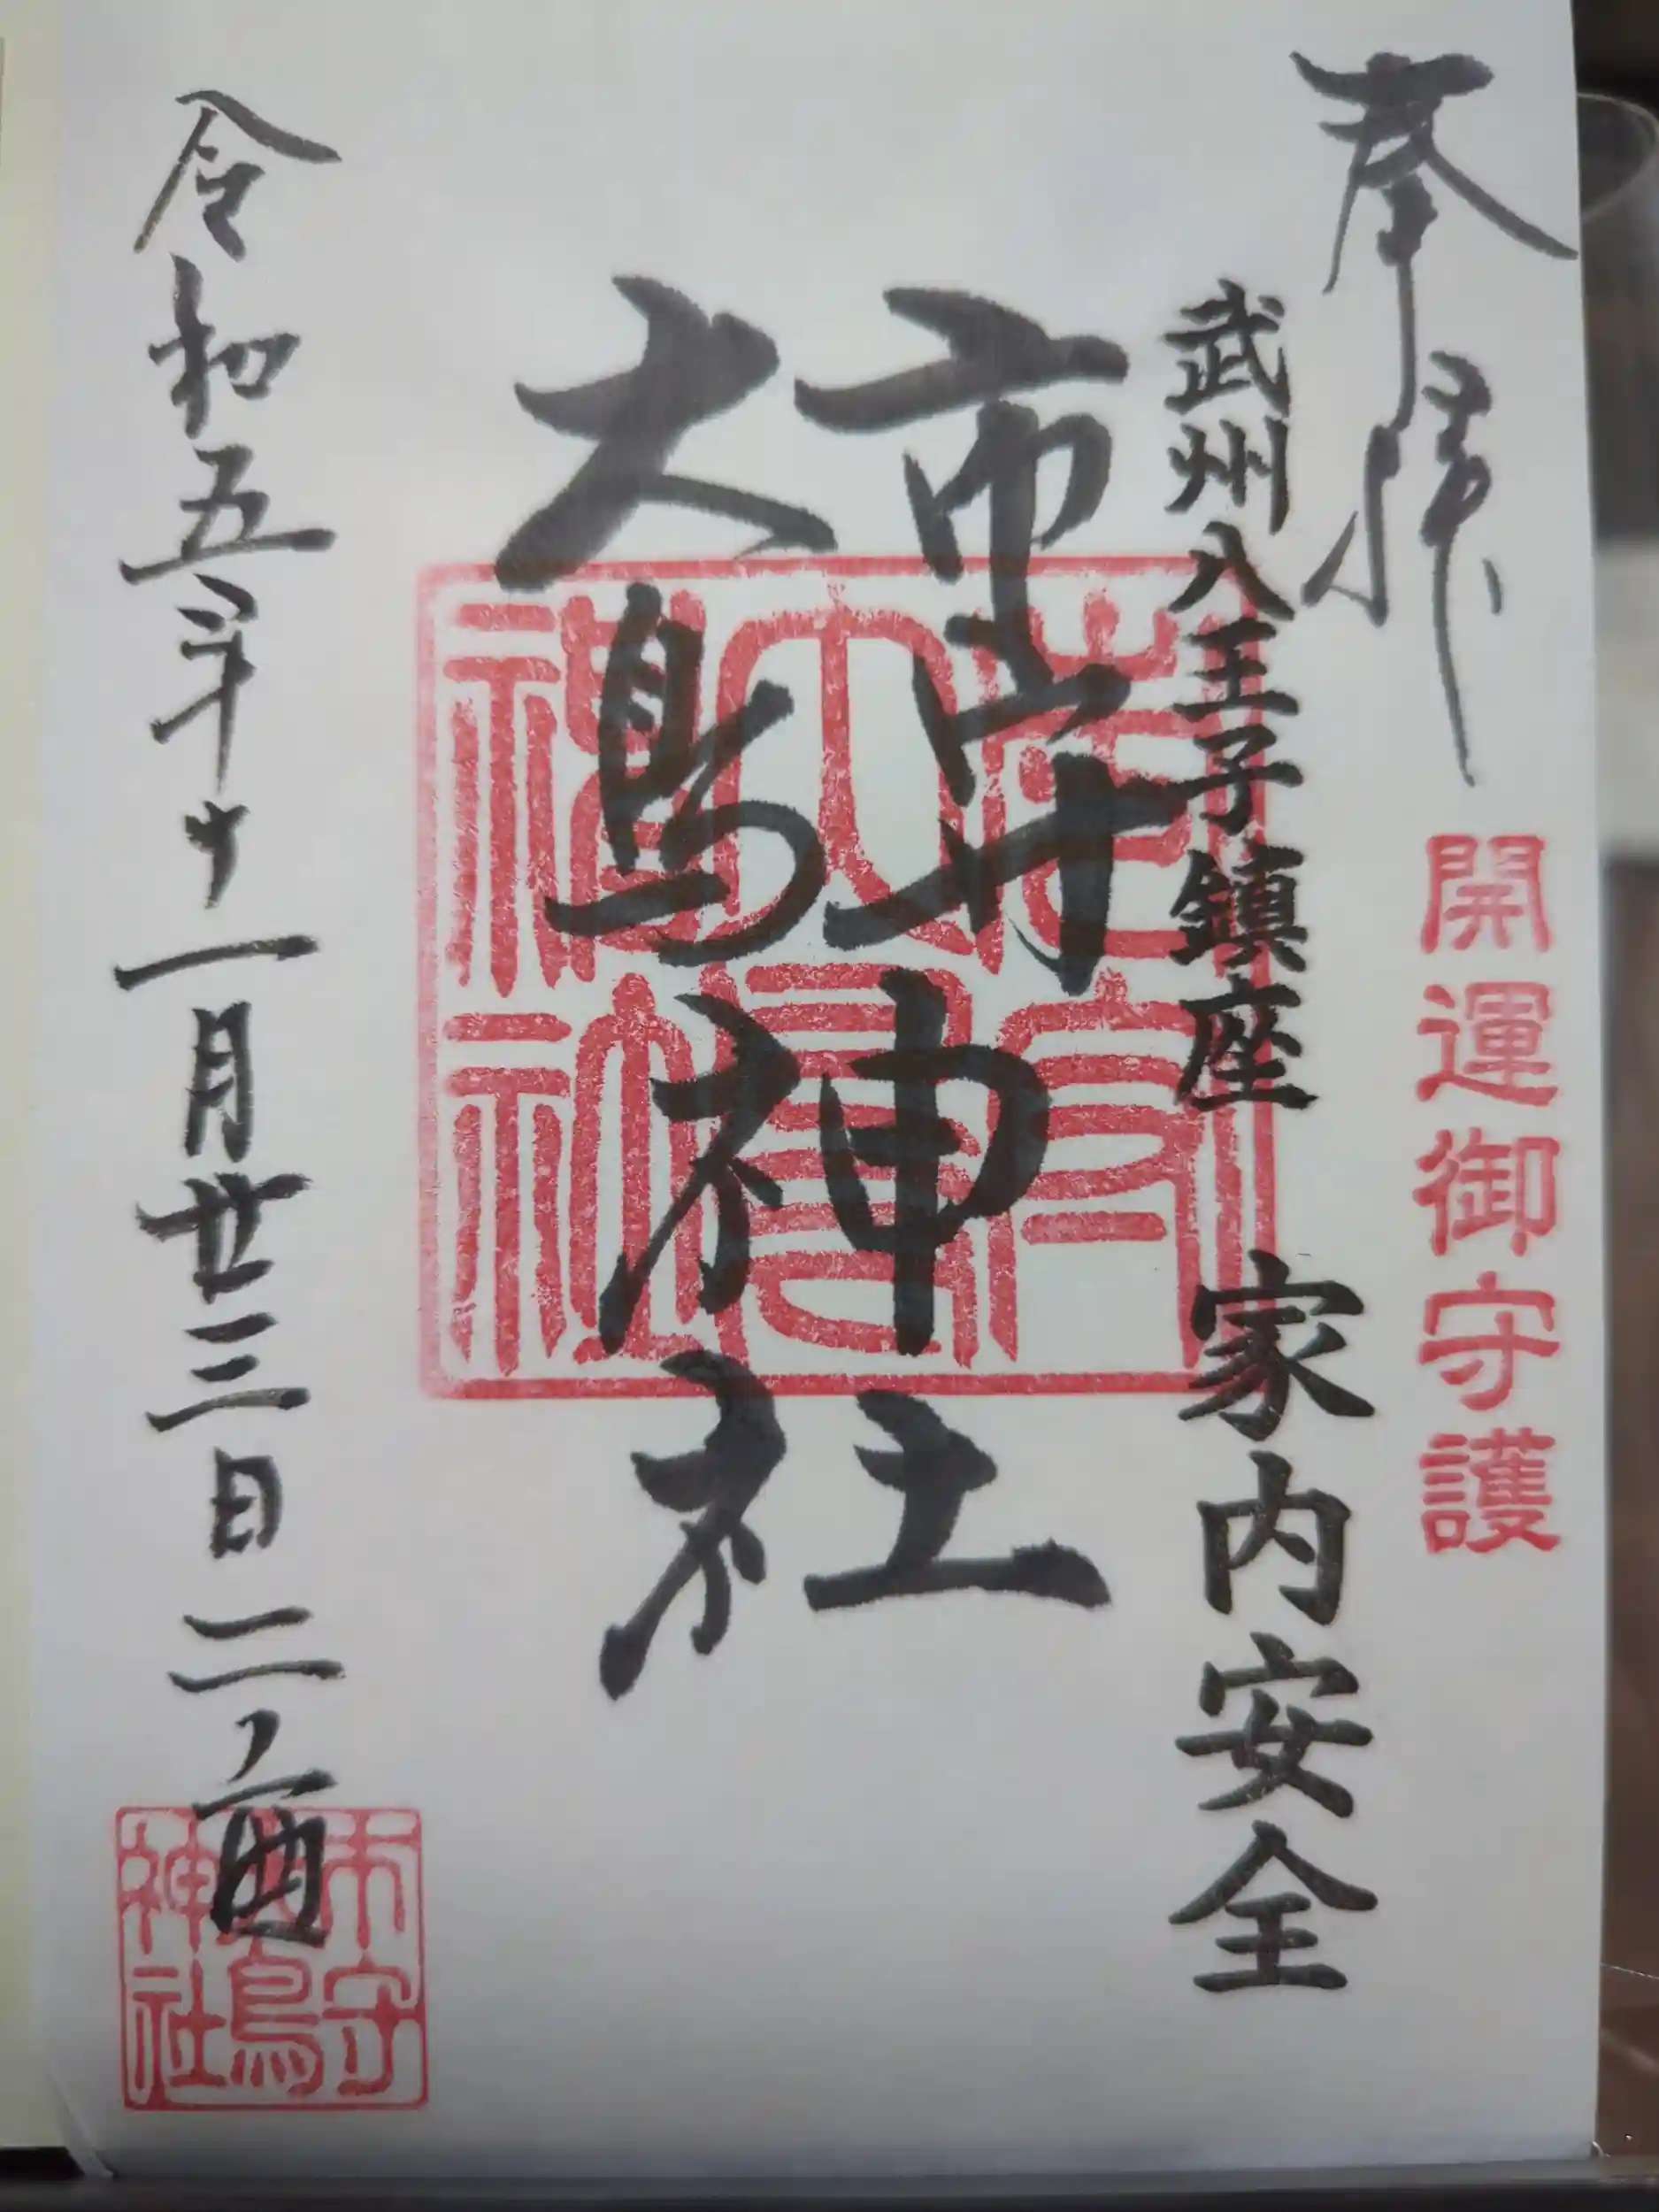 奉拝
開運御守護
武州八王子鎮座
家内安全
市守
大鳥
神社
令和五年十一月廿三日二ノ酉
市守大鳥神社